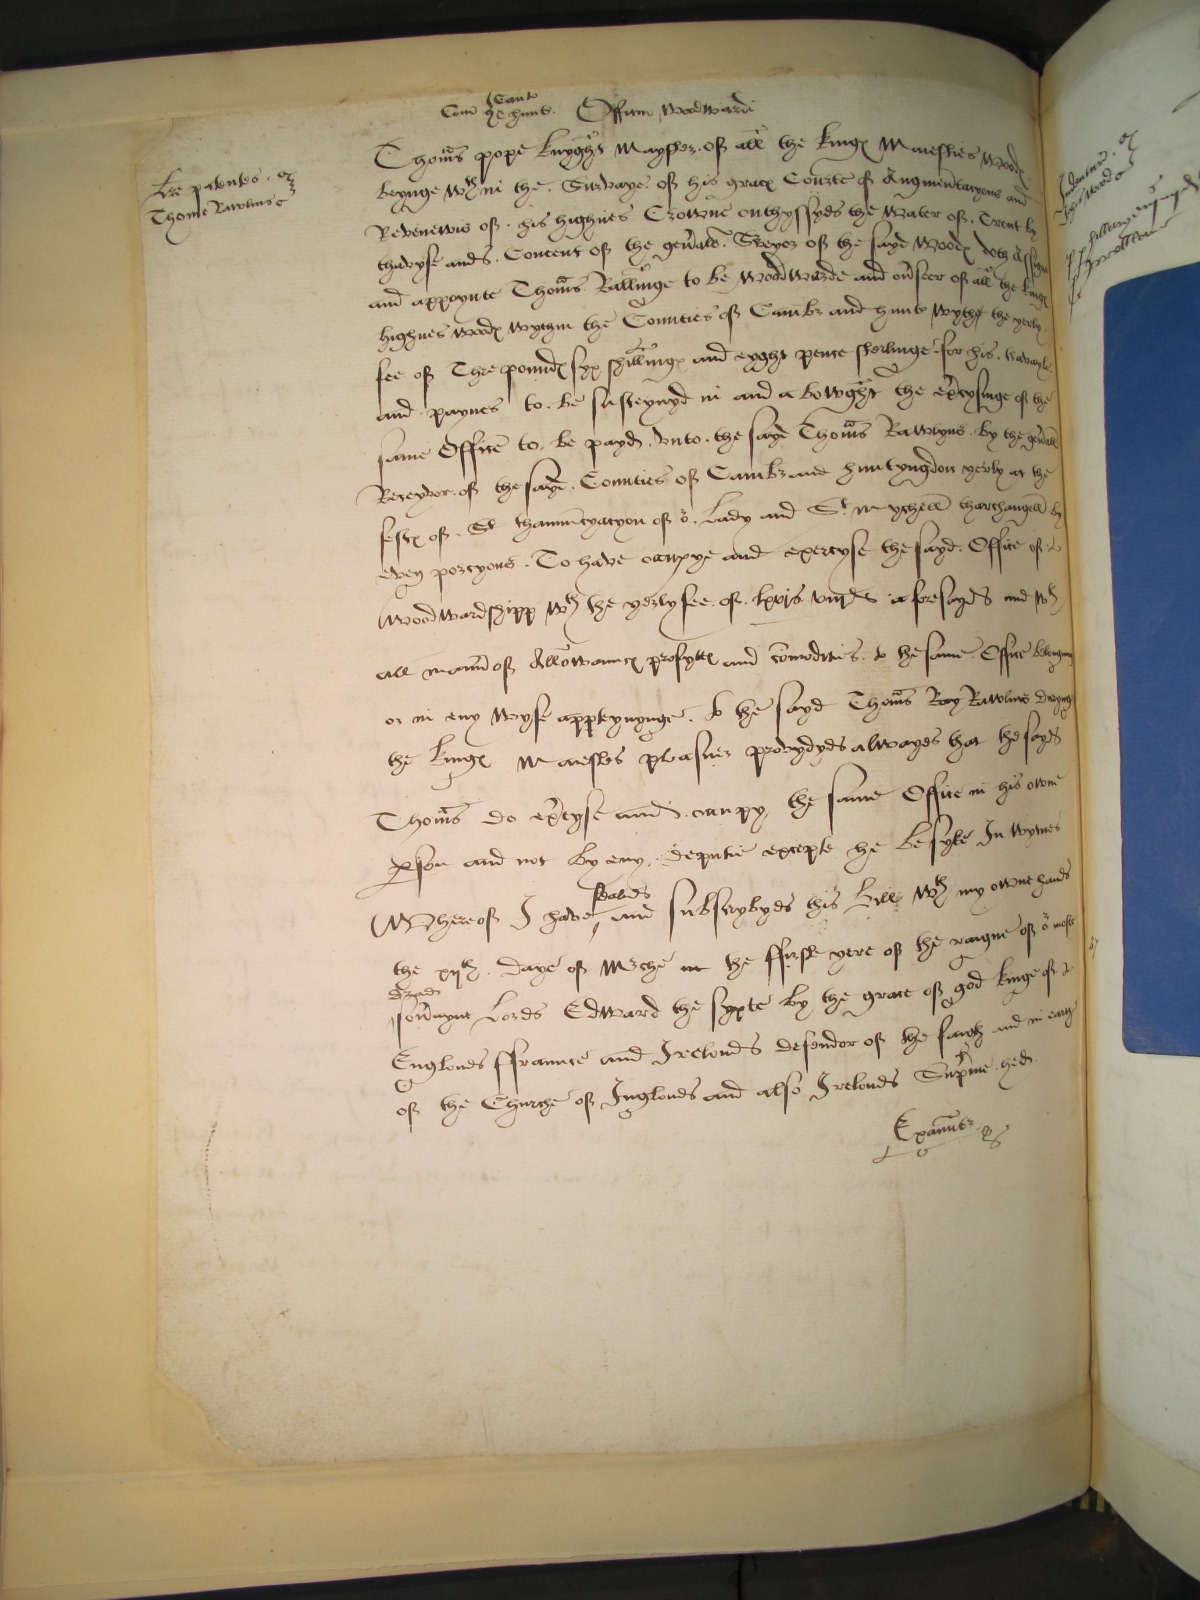 Com Cant
& hunts. Officm Woodwardi
Lre patentes
Thome Rawlins
Thomas pope knyght Mayster of all the kings Maiesties Woods
beynge wth in the Survaye of his graces Courte of Augmentacyons and
Revenewis of his highnes Crowne on thyssyde the Water of Trent by
thadvyse and Concent of the genall Sveyor of the sayd Woods doth Assigne
and appoynte Thomas Rallinge to be Woodwarde and ovseer of all the kings
highnes Woods wythin the Counties of Cambr and hunts wyth the yerly
fee of Thre pounds syx shillings and eyght pence sterlinge for his travayle
and paynes to be susteynyd in and abowght the excysinge of the
same Office to be payd vnto the sayd Thomas Rawlyns by the genall
Receyvor of the sayd Counties of Cambr and huntyngdon yerly at the
fests of thannucyacyon of or Lady and St Mychell tharchangell by
even porcyons To have occupye and exercyse the sayd Office of
Woodwardshipp wth the yerly fee of lxvjs viijd aforesayd and wth
all mann of Allowaunces profytts and comodities to the same Office belonging
or in eny wyse appteynynge to the sayd Thomas Ray Rawlins Durynge
the kings Maiesties pleasure provydyd alwayes that the sayd
Thomas do excyse and occupy the same Office in his owne
pson and not by eny deputie excepte he be syke In wytnes
Whereof I have sealed and subscrybyd this bill wth my owne hand
the xijth daye of Mrche in the ffirste yere of the raigne of or moste
dread
sovrayne Lorde Edward the syxte by the grace of god kinge of
Englond ffraunce and Irelond defendor of the faith and in earth
of the Churche of Inglond and also Irelond Supme hed
Examt